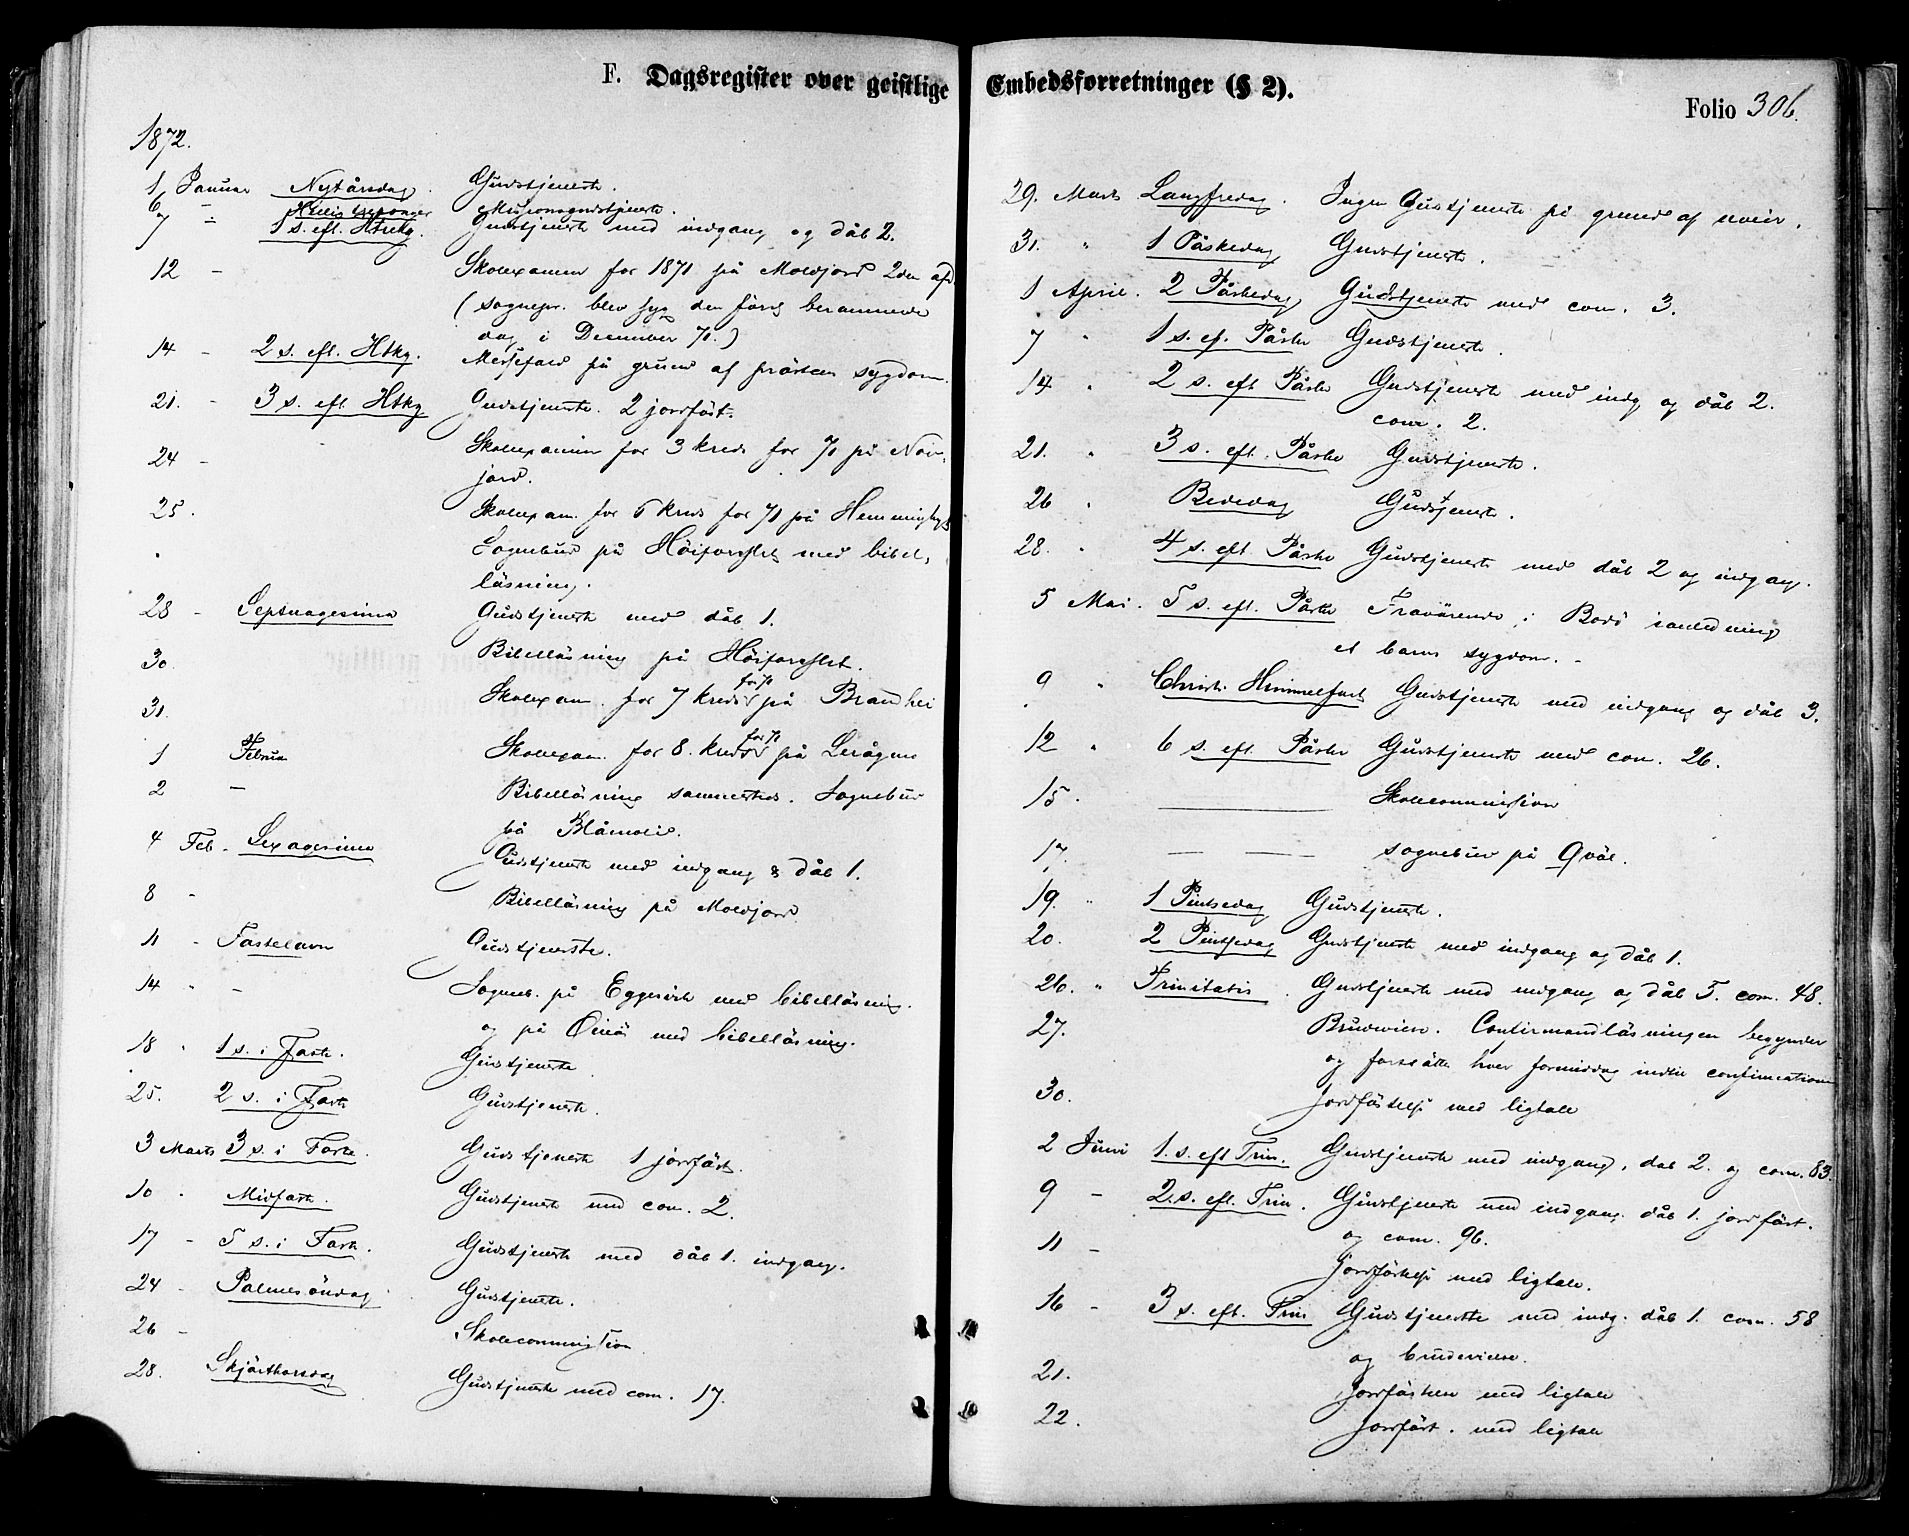 F. Dagsregister over geistlige Embedsforretninger (§ 2).
Folio 306.
1872.
1 Januar Nytårsdag. Gudstjeneste.
6 - Hellig 3 konger Missionsgudstjeneste.
7 - 1 s. eft. Htrekg. Gudstjeneste med indgang og dåb 2.
12 - Skolexamen for 1871 på Moldjord 2den afd
(sognepr. blev syg den først berammede
dag i December 71.)
14 - 2 s. eft. Htkg. Messefald på grund af præstens sygdom.
21. - 3 s. eft. Htkg Gudstjeneste. 2 jordfäst.
24 - Skolexamen for 3 kreds for 71 på
jord.
25. Skolexam. for 6 kreds for 71 på
Sognebud på Höiforslet med bibel-
läsning.
28 - Septuagesima Gudstjeneste med dåb 1.
30. Bibelläsning på Höiforslet.
31. Skolexam. for 7 kreds for 71 på Brandhei
1 Februar Skolexam. for 8. kreds for 71 på
2 — Bibelläsning sammesteds. Sognebud
på Blåmoli.
4 Feb. Sexagesima Gudstjeneste med indgang & dåb 1.
8 - Bibelläsning på Moldjord
11 - Fastelavn Gudstjeneste.
14 " - Sogneb. på Eggesvik med bibelläsning.
og på med bibelläsning.
18 " 1 s. i Faste. Gudstjeneste
25. 2 s. i Faste Gudstjeneste.
3 Marts 3 s. i Faste. Gudstjeneste 1 jordfäst.
10 " Midfaste. Gudstjeneste med com. 2.
17 - 5 s. i Faste. Gudstjeneste med dåb 1. indgang.
24 - Palmesöndag Gudstjeneste.
26 - Skolecommission
28. Skjärthorsdag Gudstjeneste med com. 17.
29. Marts Langfredag. Ingen Gudstjeneste på grund af uveir.
31. " 1 Påskedag Gudstjeneste.
1 April. 2 Påskedag Gudstjeneste med com. 3.
7 " 1 s. ef. Påske Gudstjeneste.
14 " 2 s. eft Påske Gudstjeneste med indg og dåb 2.
com. 2.
21. " 3 s. eft. Påske Gudstjeneste.
26 " Bededag Gudstjeneste.
28. " 4 s. eft. Påske Gudstjeneste med dåb 2 og indgang.
5 Mai. 5 s. eft. Påske Fraværende i Bodö ianledning
et barns sygdom. -
9 " Christi Himmelfart Gudstjeneste med indgang og dåb 3.
12 " 6 s. eft. Påske Gudstjeneste med com. 26.
15. ——— Skolecommission
17. — — — sognebud på Qväl.
19. " 1 Pintsedag Gudstjeneste.
20. 2 Pintsedag Gudstjeneste med indgang og dåb 1.
26. " Trinitatis. Gudstjeneste med indgang og dåb 5. com. 48.
27. Brudevielse. Confirmandläsningen begynder
og fortsätte hver formiddag indtil confirmationen
30. Jordfästelse med ligtale
2 Juni 1. s. eft Trin. Gudstjeneste med indgang, dåb 2. og com. 83.
9 - 2. s. eft. Trin. Gudstjeneste med indgang. dåb 1. jordfäst.
og com. 96.
11 - Jordfästelse med ligtale.
16 - 3 s. eft. Trin Gudstjeneste med indg. dåb 1. com. 58
og brudevielse.
21. Jordfästelse med ligtale
22. Jordfäst. med ligtale